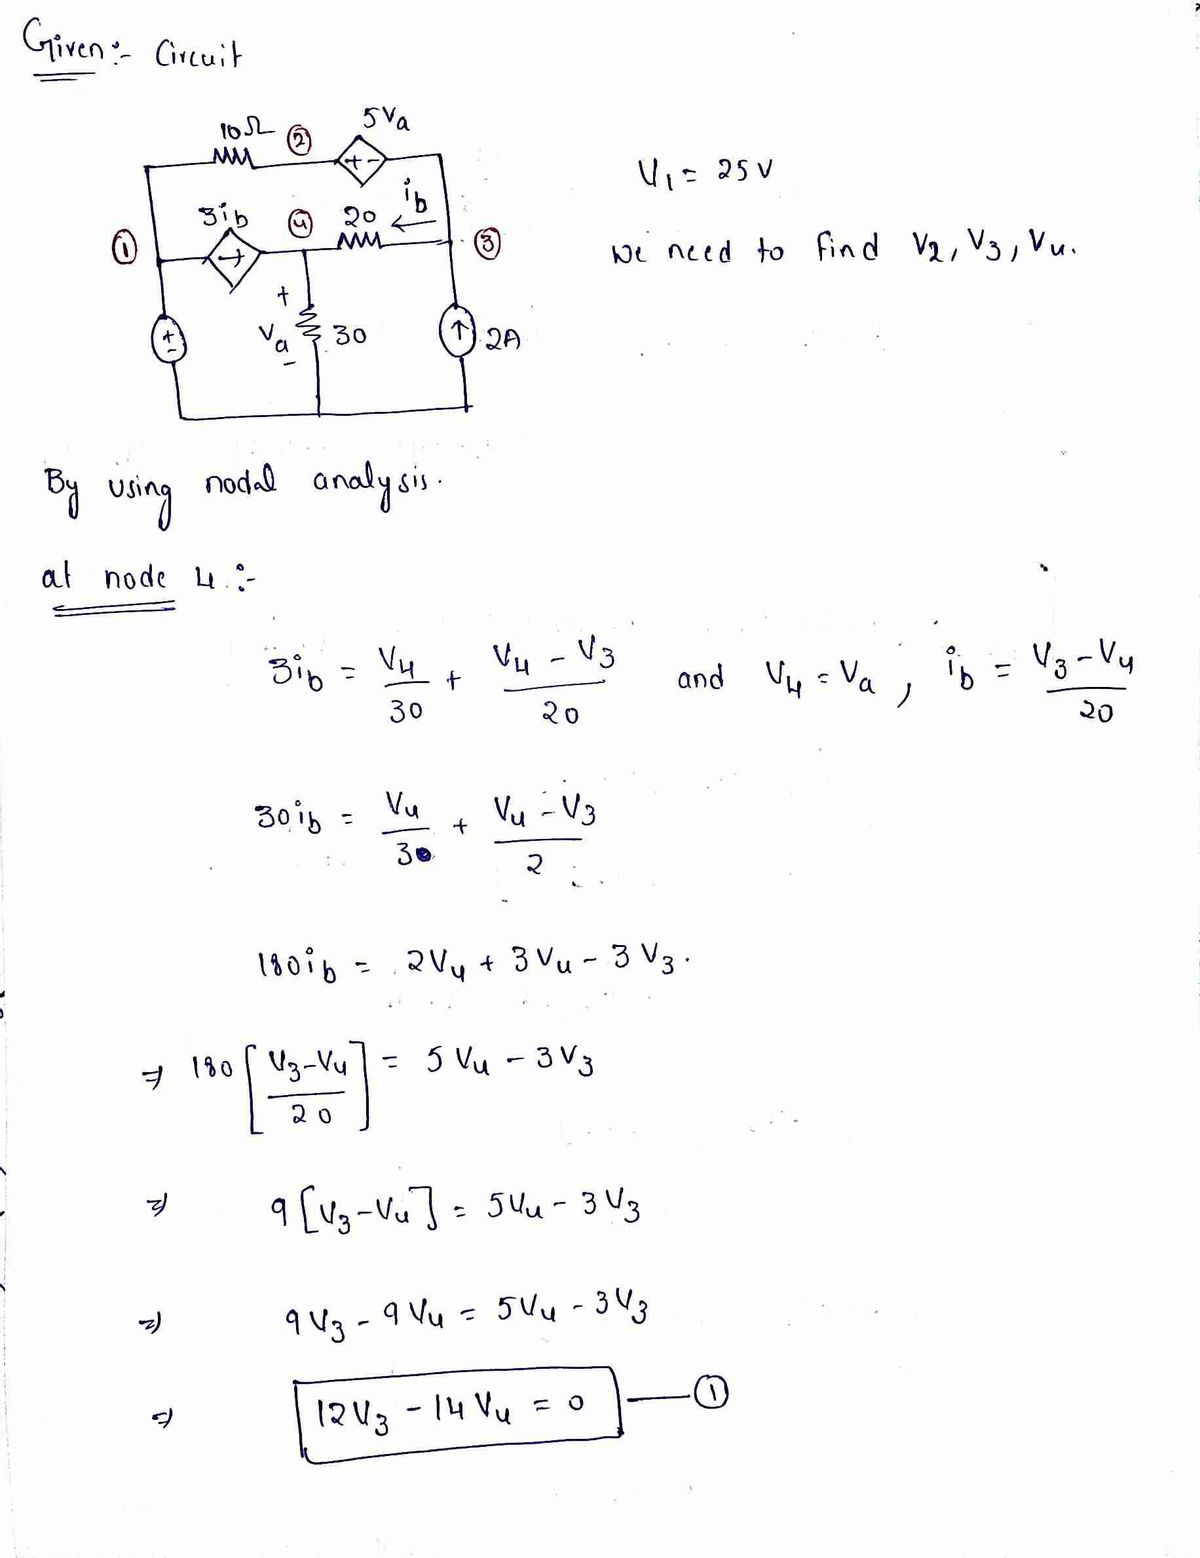 Given :- Circuit
10Ω ② 5Va
+ -
3ib ④ 20 ib
① + ③
+ -
+ Va - 30
2A
V1 = 25V
We need to find V2, V3, V4.
By using nodal analysis.
at node 4 :-
3ib = V4/30 + (V4 - V3)/20 and V4 = Va, ib = (V3 - V4)/20
30ib = V4/3 + (V4 - V3)/2
180ib = 2V4 + 3V4 - 3V3.
⇒ 180[(V3-V4)/20] = 5V4 - 3V3
⇒ 9[V3-V4] = 5V4 - 3V3
⇒ 9V3 - 9V4 = 5V4 - 3V3
⇒ 12V3 - 14V4 = 0 — ①